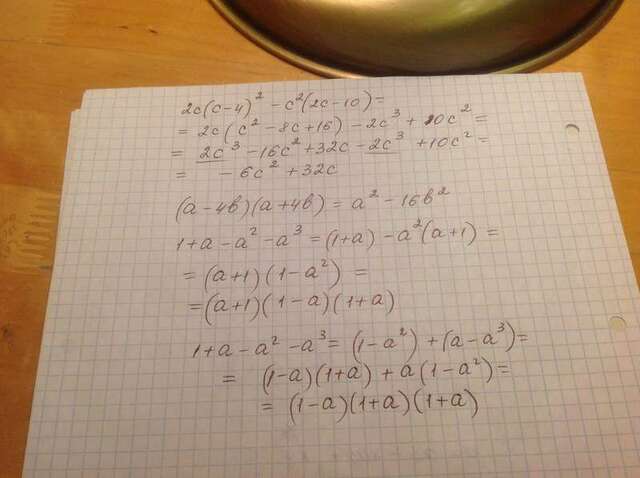 2c(c-4)² - c²(2c-10) =
= 2c(c² - 8c + 16) - 2c³ + 10c² =
= 2c³ - 16c² + 32c - 2c³ + 10c² =
= - 6c² + 32c
(a - 4b)(a + 4b) = a² - 16b²
1 + a - a² - a³ = (1+a) - a²(a+1) =
= (a+1)(1-a²) =
= (a+1)(1-a)(1+a)
1 + a - a² - a³ = (1-a²) + (a-a³) =
= (1-a)(1+a) + a(1-a²) =
= (1-a)(1+a)(1+a)